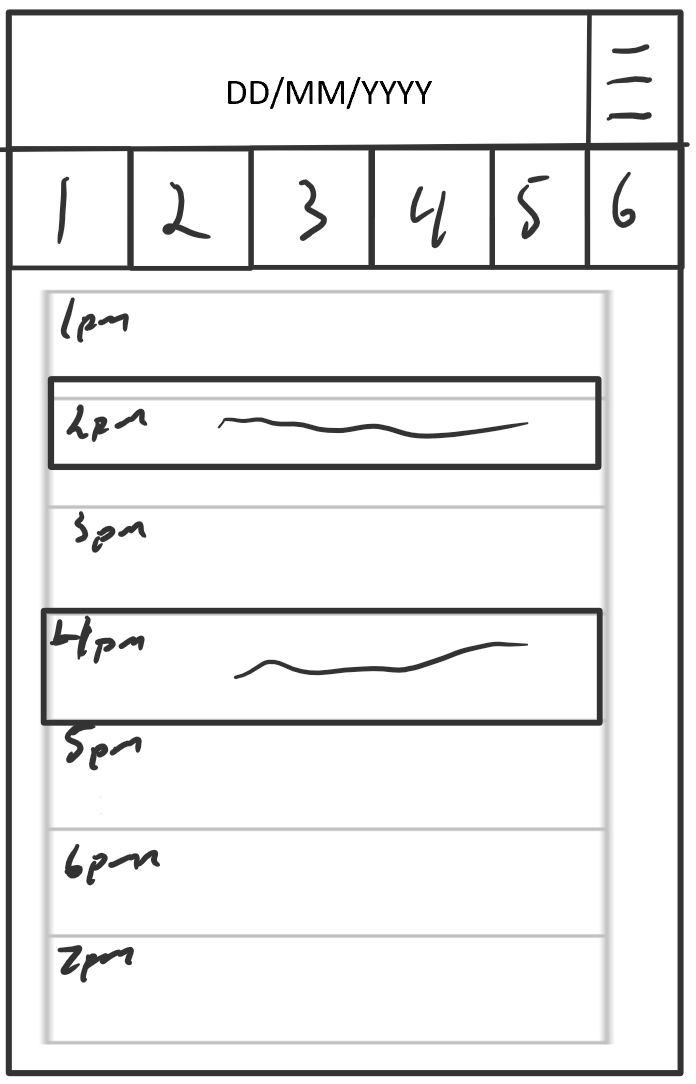 DD/MM/YYYY
1 2 3 4 5 6
1pm
2pm
3pm
4pm
5pm
6pm
7pm